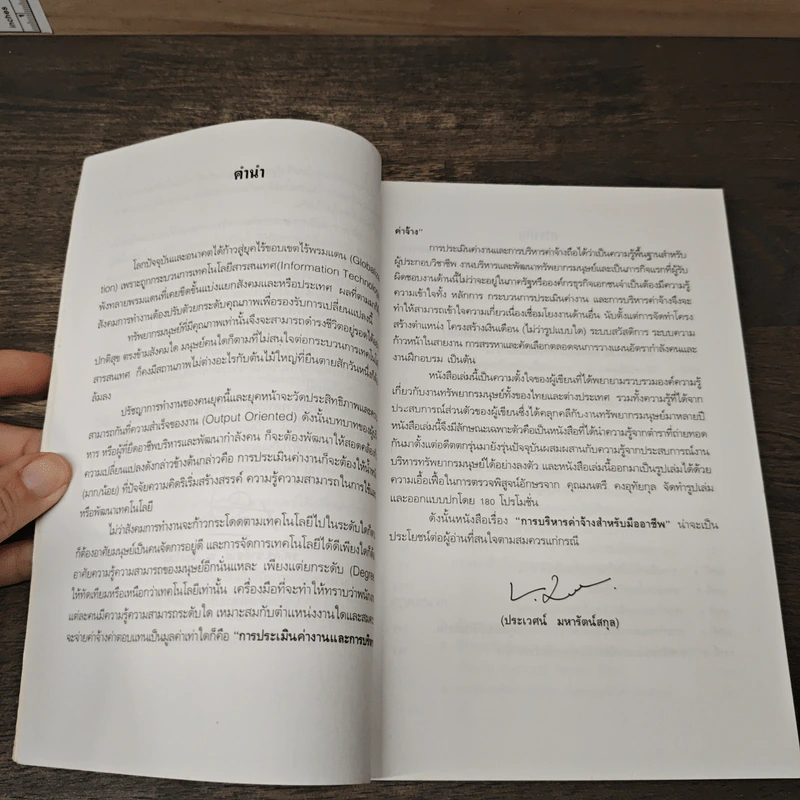 คำนำ
โลกปัจจุบันและอนาคตได้ก้าวสู่ยุคไร้ขอบเขตไร้พรมแดน (Globaliza
tion) เพราะถูกกระบวนการเทคโนโลยีสารสนเทศ(Information Technology)
พังทลายพรมแดนที่เคยขีดขั้นแบ่งแยกสังคมและหรือประเทศ ผลที่ตามมาคือ
สังคมการทำงานต้องปรับตัวยกระดับคุณภาพเพื่อรองรับการเปลี่ยนแปลงนี้
ทรัพยากรมนุษย์ที่มีคุณภาพเท่านั้นจึงจะสามารถดำรงชีวิตอยู่รอดได้อย่าง
ปกติสุข ตรงข้ามสังคมใด มนุษย์คนใดก็ตามที่ไม่สนใจต่อกระบวนการเทคโนโลยี
สารสนเทศ ก็คงมีสถานภาพไม่ต่างอะไรกับต้นไม้ใหญ่ที่ยืนตายสักวันหนึ่งก็
ล้มลง
ปรัชญาการทำงานของคนยุคนี้และยุคหน้าจะวัดประสิทธิภาพและความ
สามารถกันที่ความสำเร็จของงาน (Output Oriented) ดังนั้นบทบาทของผู้
หาร หรือผู้ที่ยึดอาชีพบริหารและพัฒนากำลังคน ก็จะต้องพัฒนาให้สอดคล้อง
ความเปลี่ยนแปลงดังกล่าวข้างต้นกล่าวคือ การประเมินค่างานก็จะต้องให้น้ำหนัก
(มาก/น้อย) ที่ปัจจัยความคิดริเริ่มสร้างสรรค์ ความรู้ความสามารถในการใช้และ
หรือพัฒนาเทคโนโลยี
ไม่ว่าสังคมการทำงานจะก้าวกระโดดตามเทคโนโลยีไปในระดับใดก็ตาม
ก็ต้องอาศัยมนุษย์เป็นคนจัดการอยู่ดี และการจัดการเทคโนโลยีได้ดีเพียงใดก็ต้อง
อาศัยความรู้ความสามารถของมนุษย์อีกนั่นแหละ เพียงแต่ยกระดับ (Degree)
ให้ทัดเทียมหรือเหนือกว่าเทคโนโลยีเท่านั้น เครื่องมือที่จะทำให้ทราบว่าพนักงาน
แต่ละคนมีความรู้ความสามารถระดับใด เหมาะสมกับตำแหน่งงานใดและสมควร
จะจ่ายค่าจ้างค่าตอบแทนเป็นมูลค่าเท่าใดก็คือ "การประเมินค่างานและการบริหาร
ค่าจ้าง"
การประเมินค่างานและการบริหารค่าจ้างถือได้ว่าเป็นความรู้พื้นฐานสำหรับ
ผู้ประกอบวิชาชีพ งานบริหารและพัฒนาทรัพยากรมนุษย์และเป็นภารกิจแรกที่ผู้รับ
ผิดชอบงานด้านนี้ไม่ว่าจะอยู่ในภาครัฐหรือองค์กรธุรกิจเอกชนจำเป็นต้องมีความรู้
ความเข้าใจทั้ง หลักการ กระบวนการประเมินค่างาน และการบริหารค่าจ้างจึงจะ
ทำให้สามารถเข้าใจความเกี่ยวเนื่องเชื่อมโยงงานด้านอื่น นับตั้งแต่การจัดทำโครง
สร้างตำแหน่ง โครงสร้างเงินเดือน (ไม่ว่ารูปแบบใด) ระบบสวัสดิการ ระบบความ
ก้าวหน้าในสายงาน การสรรหาและคัดเลือกตลอดจนการวางแผนอัตรากำลังคนและ
งานฝึกอบรม เป็นต้น
หนังสือเล่มนี้เป็นความตั้งใจของผู้เขียนที่ได้พยายามรวบรวมองค์ความรู้
เกี่ยวกับงานทรัพยากรมนุษย์ทั้งของไทยและต่างประเทศ รวมทั้งความรู้ที่ได้จาก
ประสบการณ์ส่วนตัวของผู้เขียนซึ่งได้คลุกคลีกับงานทรัพยากรมนุษย์มาหลายปี
หนังสือเล่มนี้จึงมีลักษณะเฉพาะตัวคือเป็นหนังสือที่ได้นำความรู้จากตำราที่ถ่ายทอด
กันมาตั้งแต่อดีตตกรุ่นมายังรุ่นปัจจุบันผสมผสานกับความรู้จากประสบการณ์งาน
บริหารทรัพยากรมนุษย์ได้อย่างลงตัว และหนังสือเล่มนี้ออกมาเป็นรูปเล่มได้ด้วย
ความเอื้อเฟื้อในการตรวจพิสูจน์อักษรจาก คุณมนตรี คงอุทัยกุล จัดทำรูปเล่ม
และออกแบบปกโดย 180 โปรโมชั่น
ดังนั้นหนังสือเรื่อง "การบริหารค่าจ้างสำหรับมืออาชีพ" น่าจะเป็น
ประโยชน์ต่อผู้อ่านที่สนใจตามสมควรแก่กรณี
(ประเวศน์ มหารัตน์สกุล)